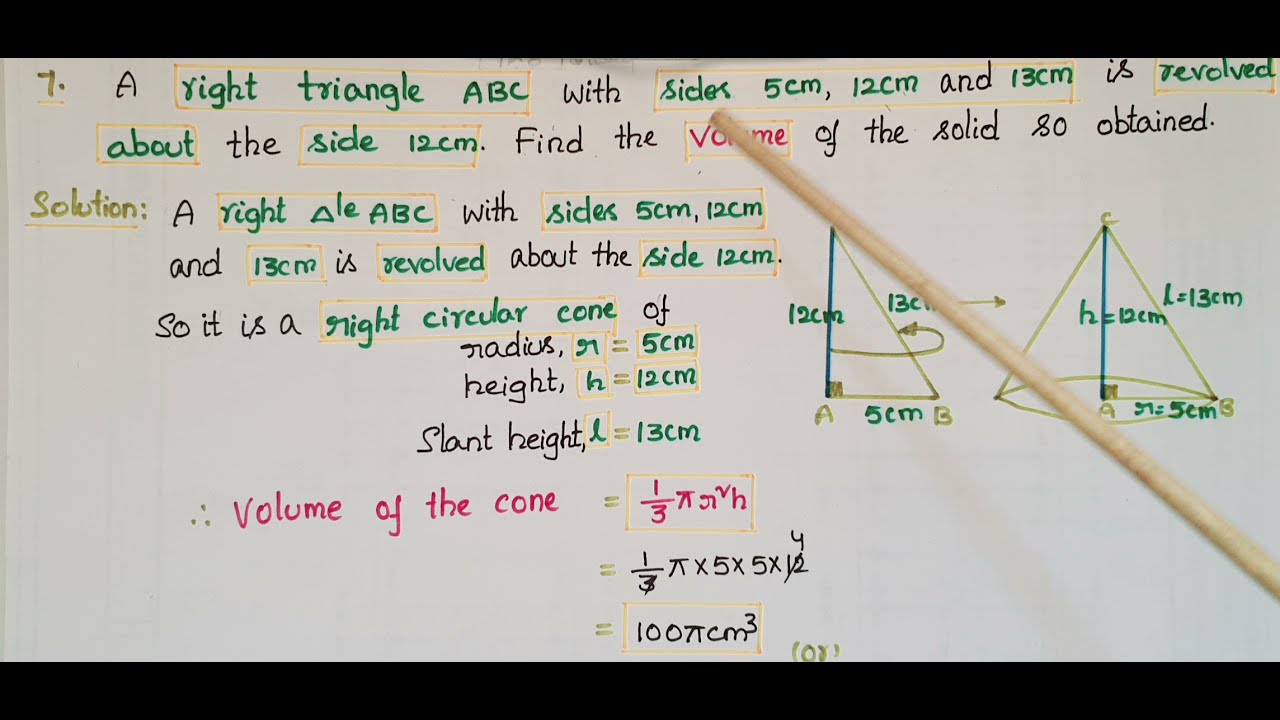 7. A right triangle ABC with sides 5cm, 12cm and 13cm is revolved
about the side 12cm. Find the Volume of the solid so obtained.
Solution: A right Δle ABC with sides 5cm, 12cm
and 13cm is revolved about the side 12cm.
So it is a right circular cone of
radius, r = 5cm
height, h = 12cm
Slant height, l = 13cm
∴ Volume of the cone = 1/3 πr²h
= 1/3 π × 5 × 5 × 12 4
= 100π cm³
(or)
12cm
13cm
A 5cm B
C
h = 12cm
l = 13cm
A r = 5cm B